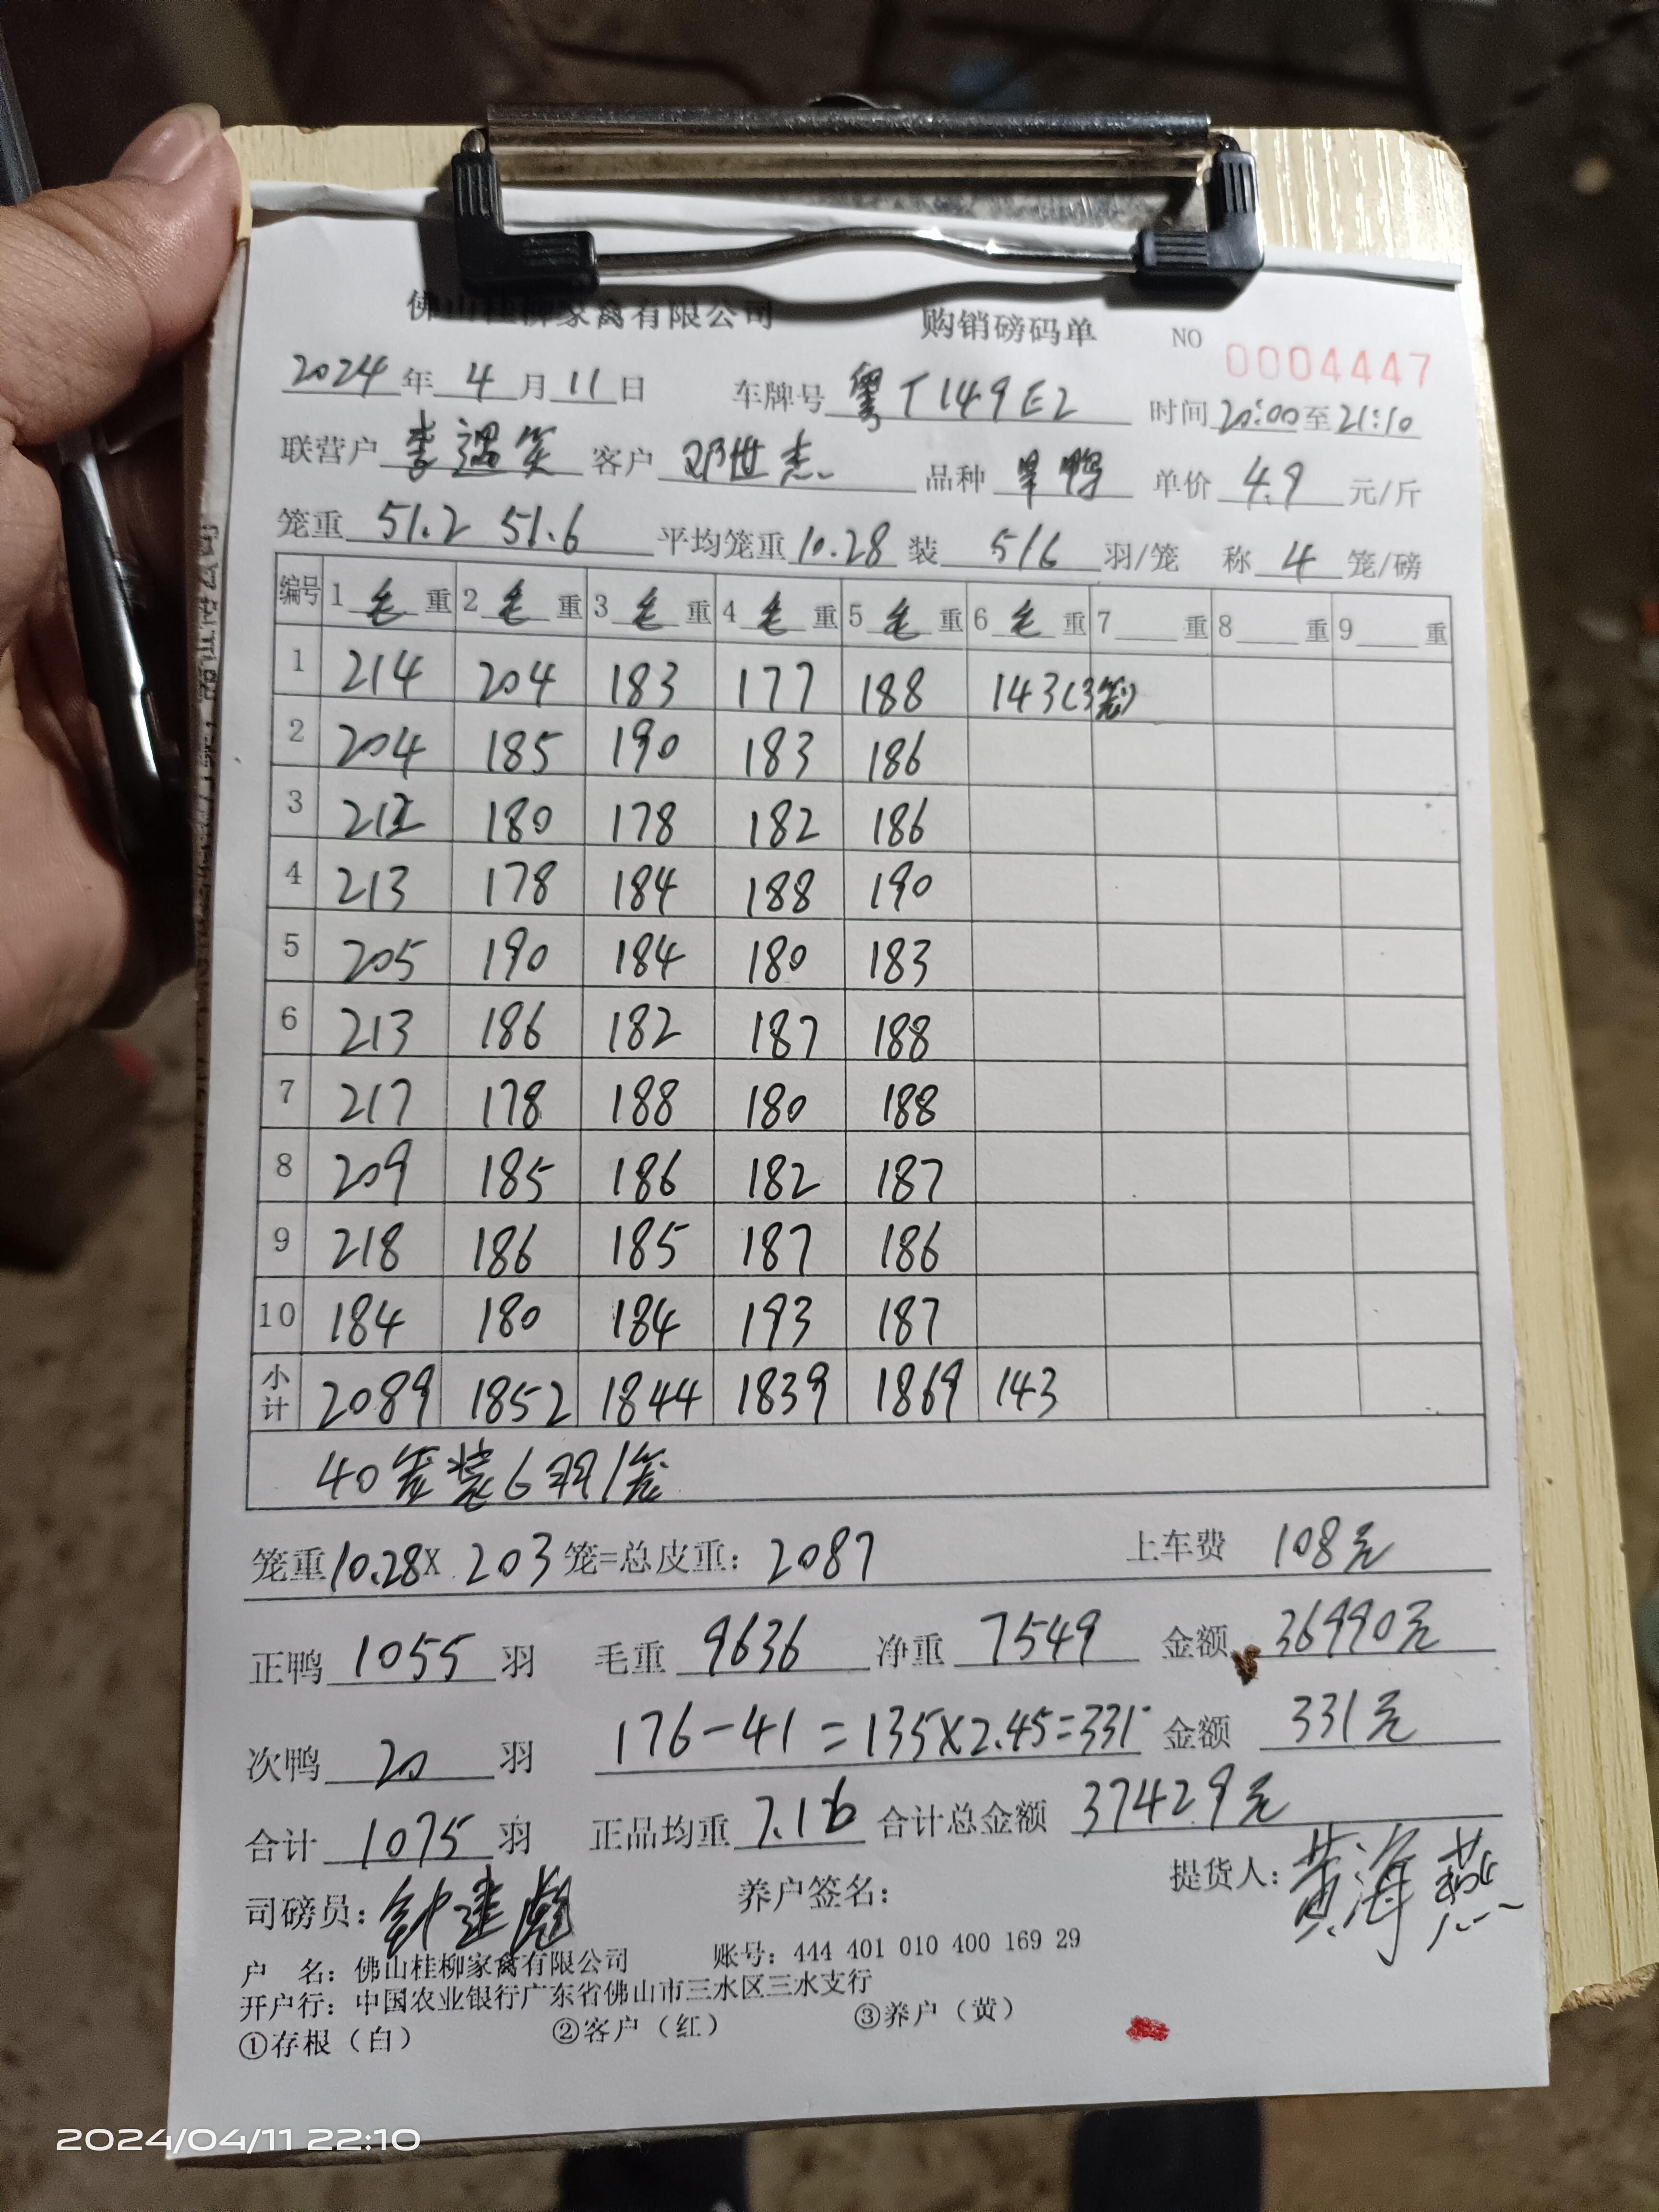 佛山桂柳家禽有限公司 购销磅码单 NO 0004447
2024年4月11日 车牌号 粤T149E2 时间20:00至21:10
联营户 李遇笑 客户 邓世杰 品种 旱鸭 单价 4.9 元/斤
笼重 51.2 51.6 平均笼重10.28 装 5/6 羽/笼 称 4 笼/磅
编号 1毛重 2毛重 3毛重 4毛重 5毛重 6毛重 7重 8重 9重
1 214 204 183 177 188 143(3笼)
2 204 185 190 183 186
3 212 180 178 182 186
4 213 178 184 188 190
5 205 190 184 180 183
6 213 186 182 187 188
7 217 178 188 180 188
8 209 185 186 182 187
9 218 186 185 187 186
10 184 180 184 193 187
小计 2089 1852 1844 1839 1869 143
40笼装6羽1笼
笼重10.28X 203笼=总皮重: 2087 上车费 108元
正鸭 1055 羽 毛重 9636 净重 7549 金额 36990元
次鸭 20 羽 176-41=135X2.45=331 金额 331元
合计 1075 羽 正品均重 7.16 合计总金额 37429元
司磅员: 钟建彪 养户签名: 提货人: 黄海燕
户 名: 佛山桂柳家禽有限公司 账号: 444 401 010 400 169 29
开户行: 中国农业银行广东省佛山市三水区三水支行
①存根(白) ②客户(红) ③养户(黄)
2024/04/11 22:10